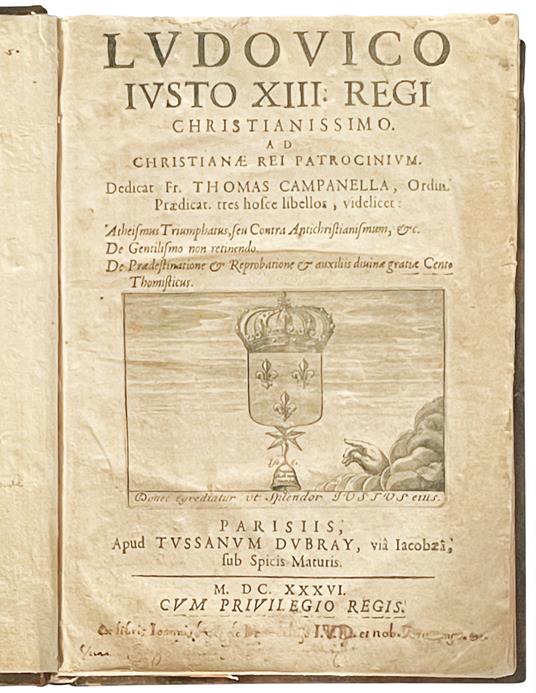 LVDOVICO
IVSTO XIII: REGI
CHRISTIANISSIMO.
AD
CHRISTIANÆ REI PATROCINIVM.
Dedicat Fr. THOMAS CAMPANELLA, Ordin.
Prædicat. tres hosce libellos, videlicet:
Atheismus Triumphatus, seu Contra Antichristianismum, &c.
De Gentilismo non retinendo.
De Prædestinatione & Reprobatione & auxiliis diuinæ gratiæ Cento
Thomisticus.
Donec egrediatur vt Splendor IUSTUS eius.
PARISIIS,
Apud TVSSANVM DVBRAY, viâ Iacobæâ,
sub Spicis Maturis.
M. DC. XXXVI.
CVM PRIVILEGIO REGIS.
Ex libris Ioannis I.V.D. et nob.